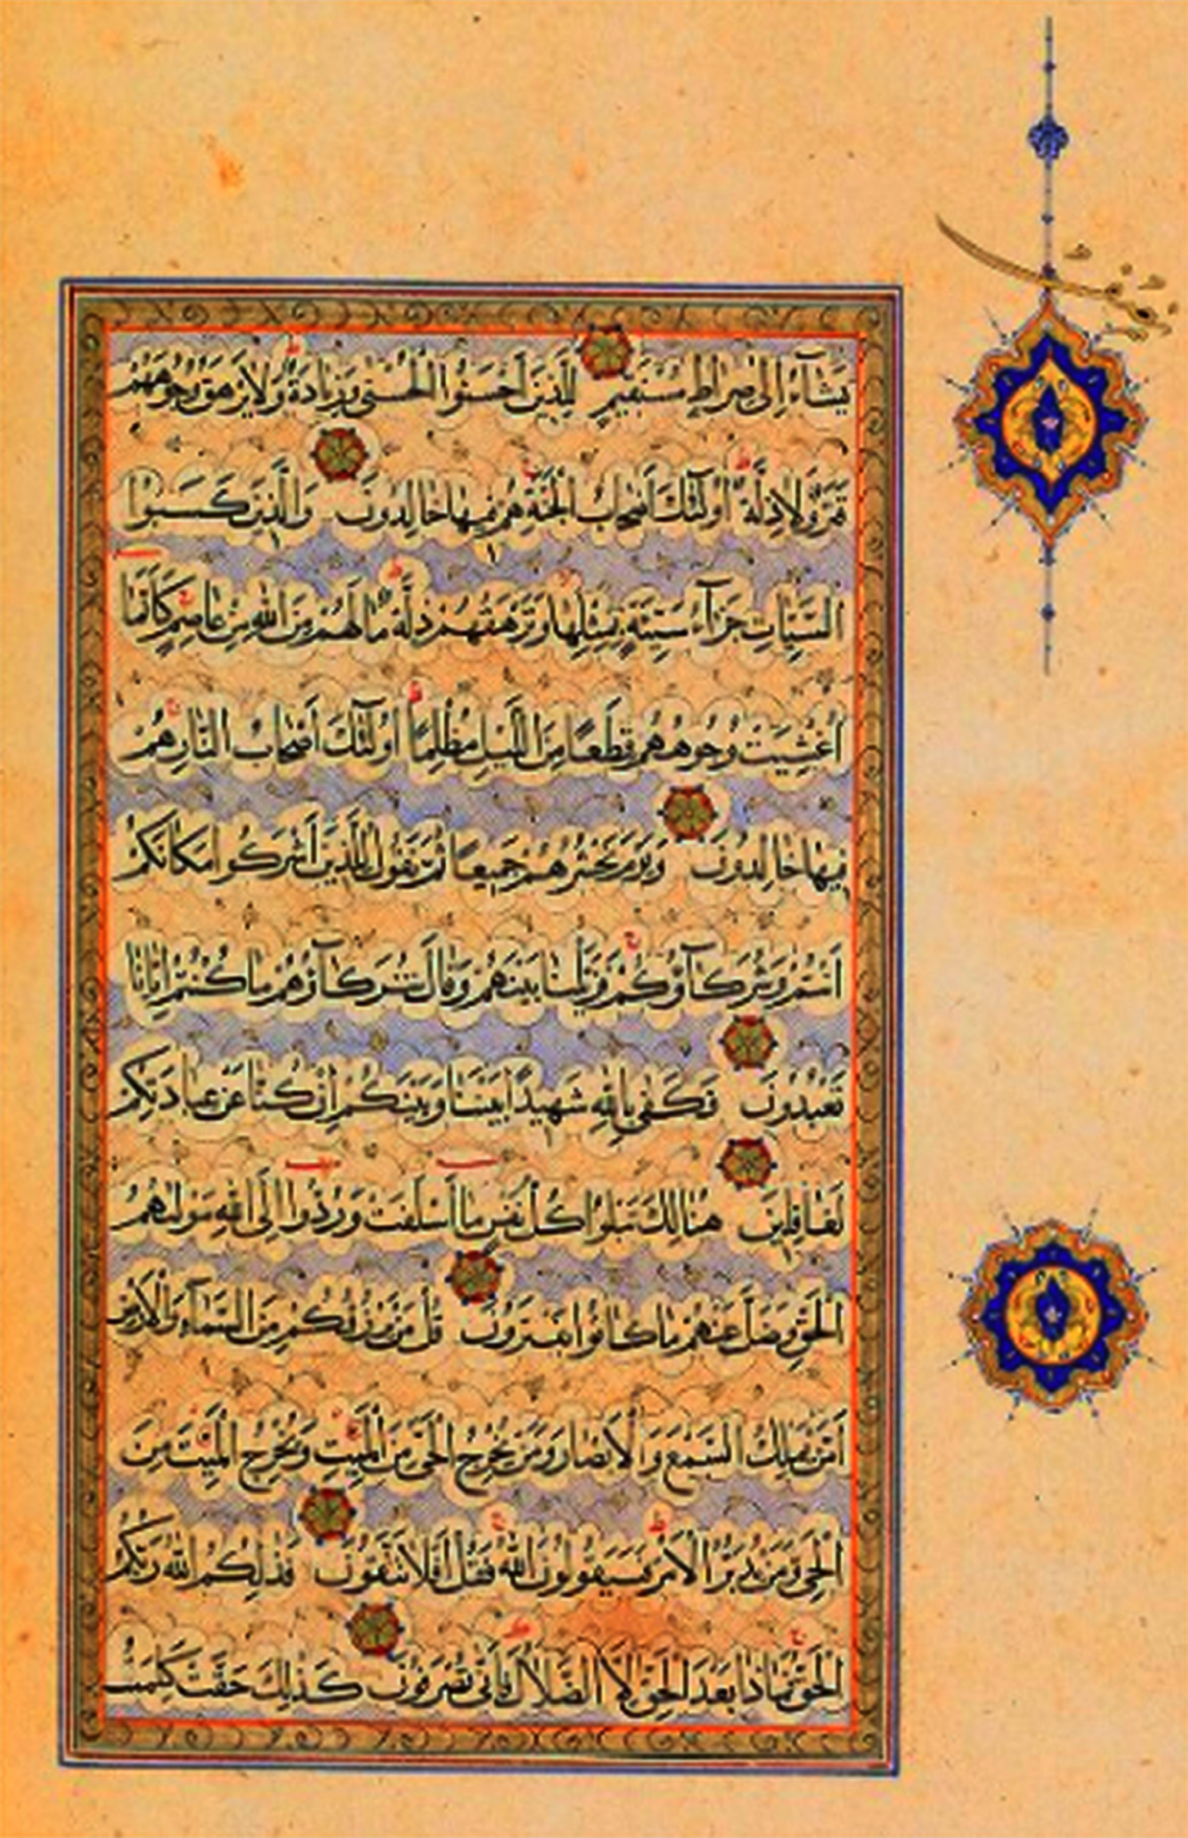 يَشَآءُ اِلىٰ صِرَاطٍ مُسْتَقيمٍ لِلَّذينَ اَحْسَنُوا الْحُسْنىٰ وَزِيَادَةٌ وَلَا يَرْهَقُ وُجُوهَهُمْ
قَتَرٌ وَلَا ذِلَّةٌ اُولٰئِكَ اَصْحَابُ الْجَنَّةِ هُمْ فيهَا خَالِدُونَ وَالَّذينَ كَسَبُوا
السَّيِّاٰتِ جَزَآءُ سَيِّئَةٍ بِمِثْلِهَا وَتَرْهَقُهُمْ ذِلَّةٌ مَا لَهُمْ مِنَ اللّٰهِ مِنْ عَاصِمٍ كَاَنَّمَا
اُغْشِيَتْ وُجُوهُهُمْ قِطَعًا مِنَ الَّيْلِ مُظْلِمًا اُولٰئِكَ اَصْحَابُ النَّارِ هُمْ
فيهَا خَالِدُونَ وَيَوْمَ نَحْشُرُهُمْ جَميعًا ثُمَّ نَقُولُ لِلَّذينَ اَشْرَكُوا مَكَانَكُمْ
اَنْتُمْ وَشُرَكَآؤُكُمْ فَزَيَّلْنَا بَيْنَهُمْ وَقَالَ شُرَكَآؤُهُمْ مَا كُنْتُمْ اِيَّانَا
تَعْبُدُونَ فَكَفىٰ بِاللّٰهِ شَهيدًا بَيْنَنَا وَبَيْنَكُمْ اِنْ كُنَّا عَنْ عِبَادَتِكُمْ
لَغَافِلينَ هُنَالِكَ تَبْلُوا كُلُّ نَفْسٍ مَا اَسْلَفَتْ وَرُدُّوا اِلَى اللّٰهِ مَوْلٰیهُمُ
الْحَقِّ وَضَلَّ عَنْهُمْ مَا كَانُوا يَفْتَرُونَ قُلْ مَنْ يَرْزُقُكُمْ مِنَ السَّمَآءِ وَالْاَرْضِ
اَمَّنْ يَمْلِكُ السَّمْعَ وَالْاَبْصَارَ وَمَنْ يُخْرِجُ الْحَيَّ مِنَ الْمَيِّتِ وَيُخْرِجُ الْمَيِّتَ مِنَ
الْحَيِّ وَمَنْ يُدَبِّرُ الْاَمْرَ فَسَيَقُولُونَ اللّٰهُ فَقُلْ اَفَلَا تَتَّقُونَ فَذٰلِكُمُ اللّٰهُ رَبُّكُمُ
الْحَقُّ فَمَاذَا بَعْدَ الْحَقِّ اِلَّا الضَّلَالُ فَاَنّٰى تُصْرَفُونَ كَذٰلِكَ حَقَّتْ كَلِمَتُ